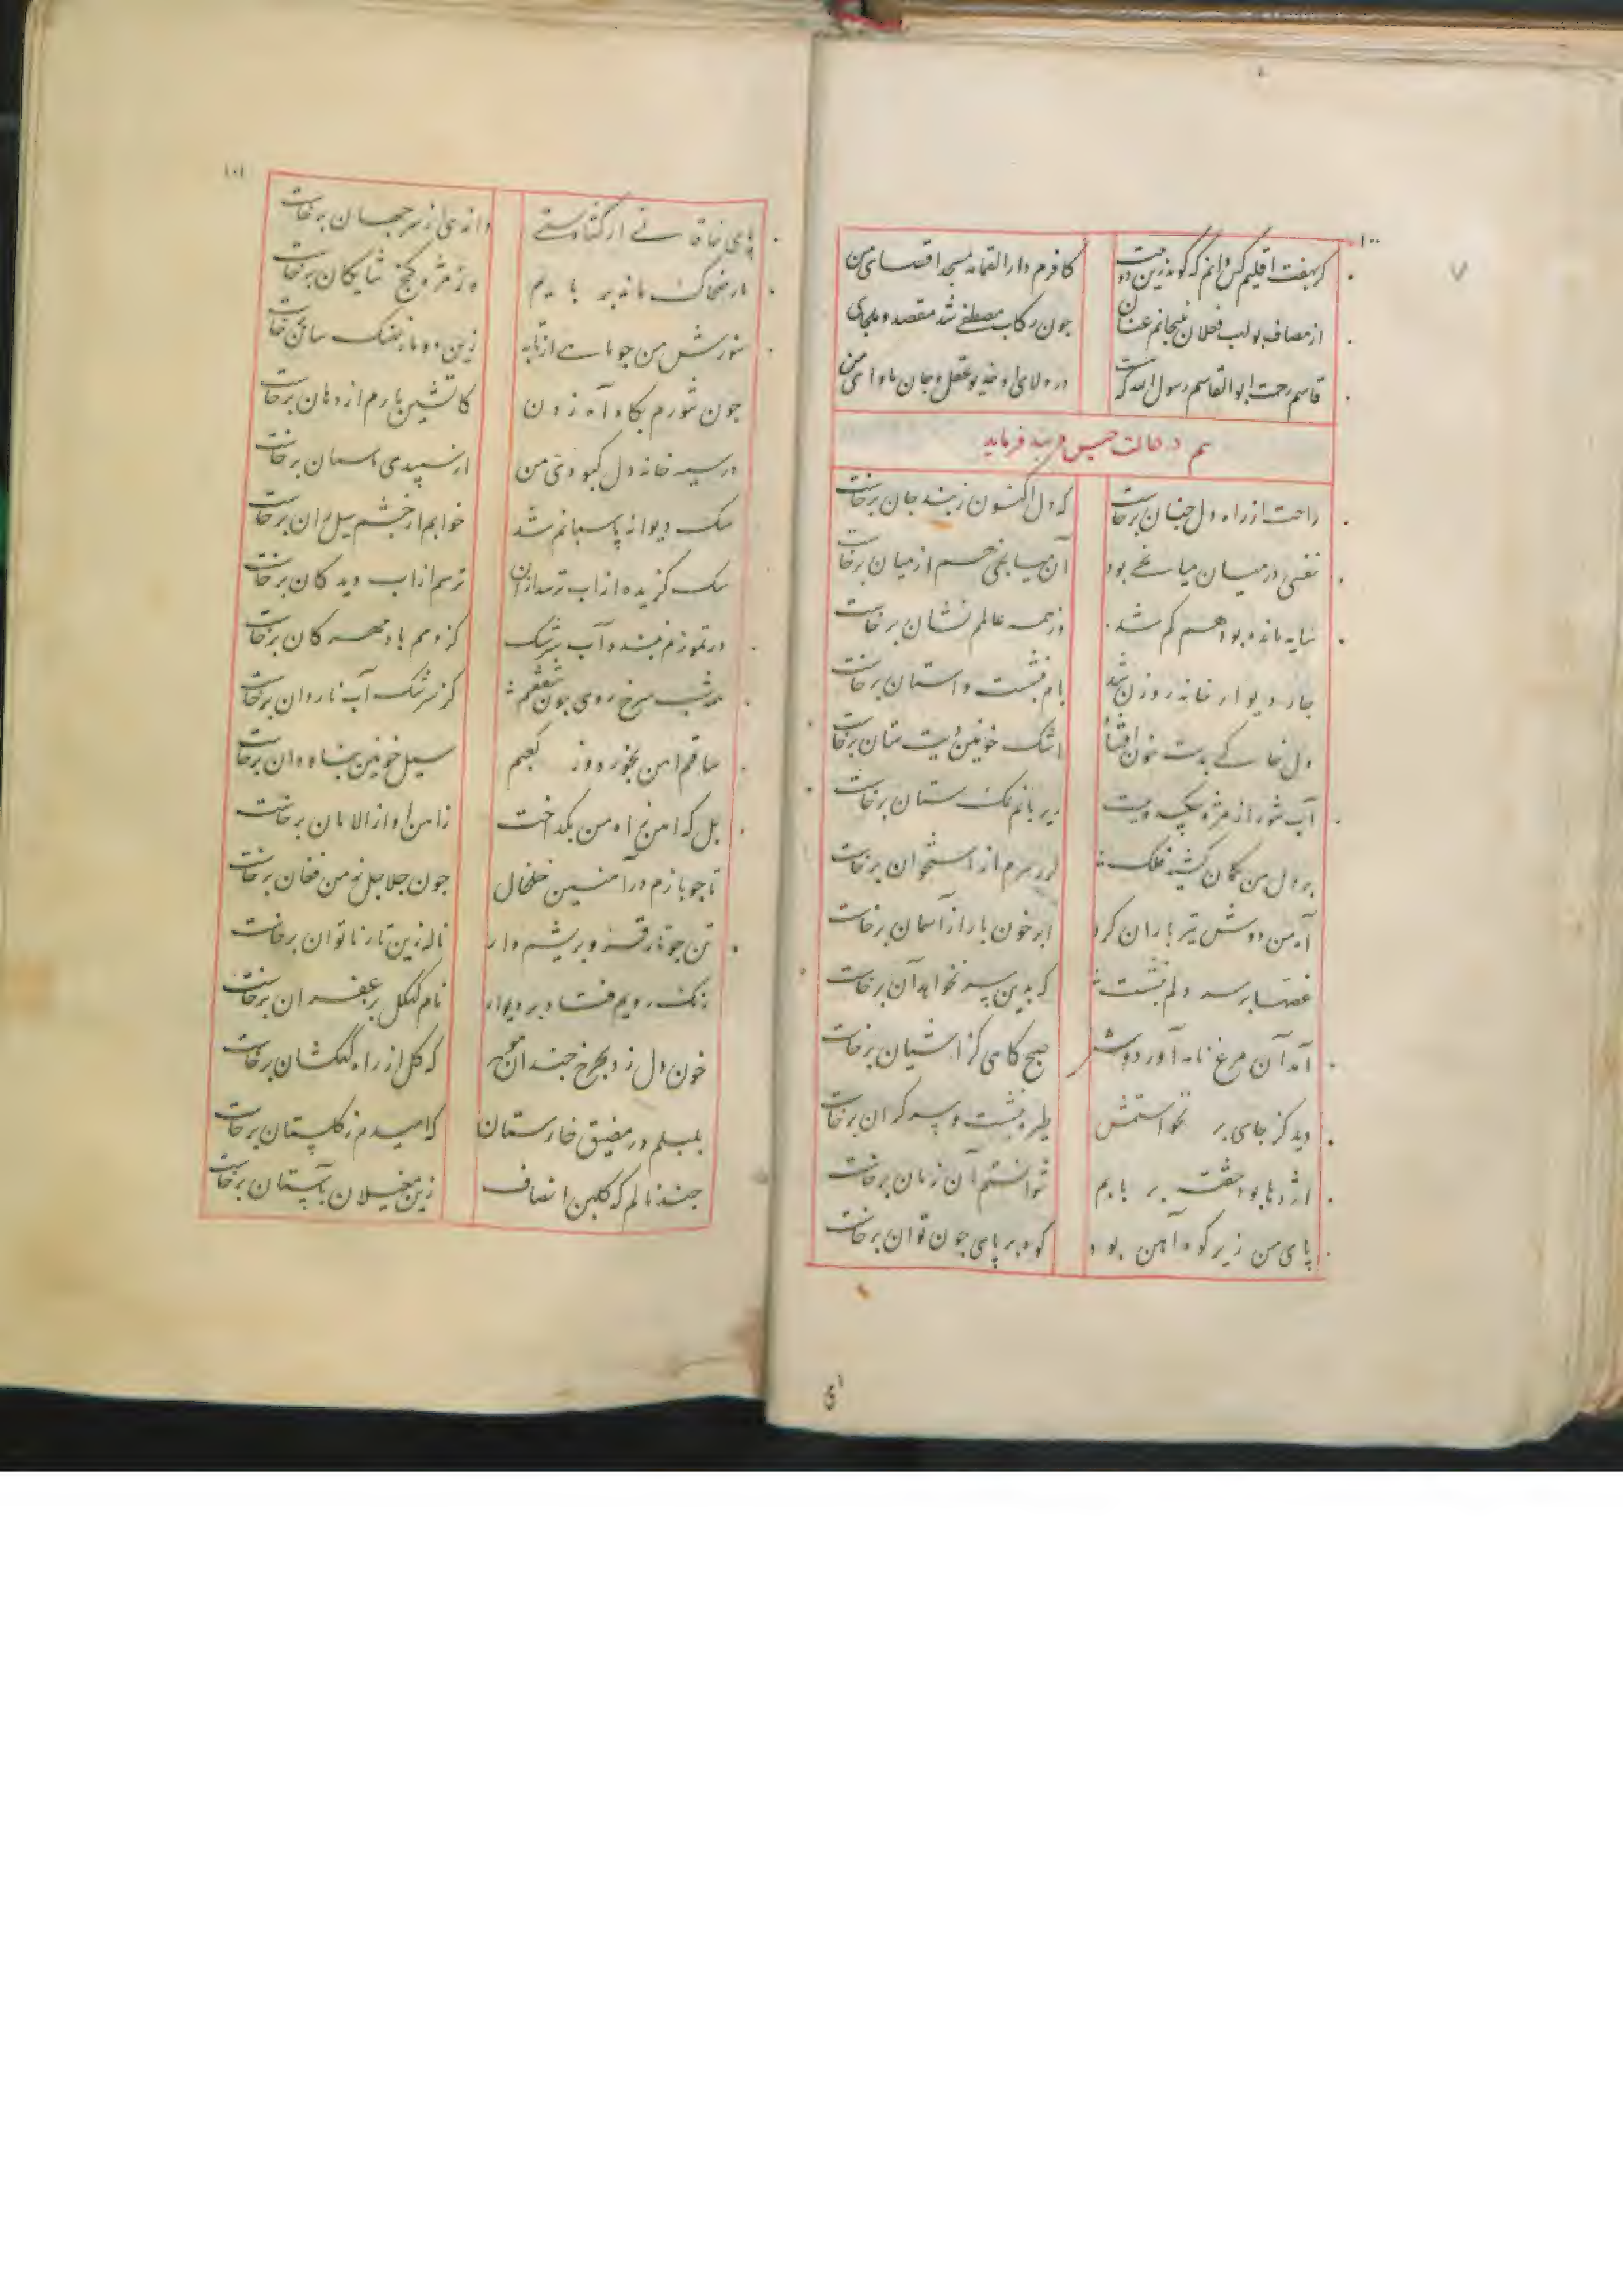 ۱۰۰
گر بهفت اقلیم کس دانم که گوید زین دو بیت کافرم دار القمامه مسجد اقصای من
از مصاف بولهب فعلان نپیچانم عنان جون رکاب مصطفی شد مقصد و ملجای من
قاسم رحمت ابو القاسم رسول الله که در ولای او خدیو عقل و جان مولای من
هم در حالت حبس و بند فرماید
راحت از راه دل جنان برخاست که دل اکنون ز بند جان برخاست
نفسی در میان میانجی بود آن میانجی هم از میان برخاست
سایه مانده بود هم گم شد وز همه عالم نشان برخاست
جار دیوار خانه روزن شد بام بنشست و استان برخاست
دل خاکی بدست خون افتاد اشک خونین دیت ستان برخاست
آب شور از مژه چکید و ببست زیر پایم نمک ستان برخاست
بر دل من کمان کشید فلک لرز تیرم از استخوان برخاست
آه من دوش تیر باران کرد ابر خون بار از آسمان برخاست
غصه بر سر دلم بنشست که بدین سر نخواهد آن برخاست
آمد آن مرغ نامه آور دوست صبح کاهی کز اشیان برخاست
دید کز جای بر نخواستمش طیره بنشست و سر کران برخاست
اژدها بود خفته بر پایم نتوانستم آن زمان برخاست
پای من زیر کوه آهن بود کوه بر پای جون توان برخاست
پای
۱۰۱
پای خاقانی ار کشادستی داندی از سر جهان برخاست
مار ضحاک ماند بر پایم وز مژه کنج شایکان برخاست
سوزش من جو ماهی از تابه زین دو مار نهنک سان برخاست
جون تنورم بکاه آه زدن کاتشین مارم از دهان برخاست
در سیه خانه دل کبودی من از سپیدی پاسبان برخاست
سک دیوانه پاسبانم شد خوابم از چشم سیل ران برخاست
سک کزیده از اب ترسد از ان ترسم از اب دیدکان برخاست
در تموزم ببندد آب سرشک کز دمم باد مهرکان برخاست
همه شب سرخ روی جون شفقم کز سرشک آب ناردان برخاست
ساقم آهن بخورد و از کعبم سیل خونین بناودان برخاست
بل که آهن ز آه من بکداخت ز آهن آواز الامان برخاست
تا جو بازم در آهنین خلخال جون جلاجل ز من فغان برخاست
تن جو تار قز و بریشم وار ناله زین تار ناتوان برخاست
رنک رویم فتاد بر دیوار نام کهکل بزعفران برخاست
خون دل زد بجرخ جندان موج که کل از راه کهکشان برخاست
بلبلم در مضیق خارستان که امیدم ز کلستان برخاست
جند نالم که کلبن انصاف زین مغیلان باستان برخاست